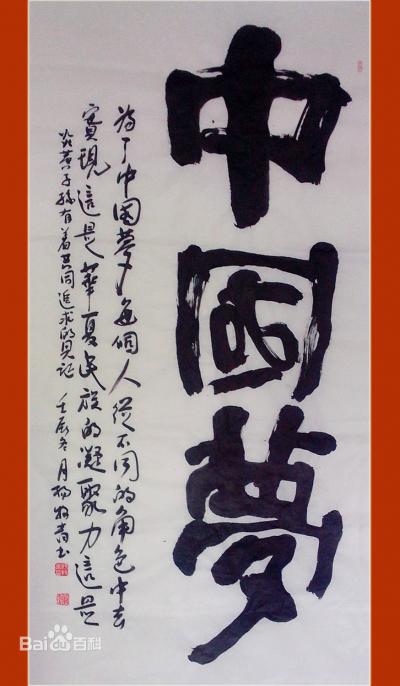 中國夢
為了中國夢每個人從不同的角色中去
實現這是華夏民族的凝聚力這是
炎黃子孫有着共同追求的見證 壬辰冬月楊牧青书
Bai百科